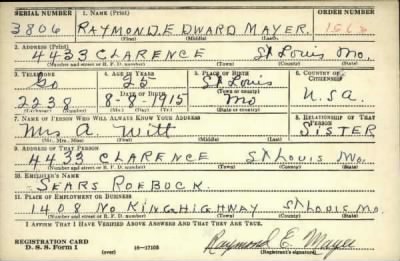 SERIAL NUMBER 1. NAME (Print) ORDER NUMBER
3806 RAYMOND EDWARD MAYER.
(First) (Middle) (Last)
2. ADDRESS (Print)
4433 CLARENCE St Louis Mo.
(Number and street or R. F. D. number) (Town) (County) (State)
3. TELEPHONE 4. AGE IN YEARS 5. PLACE OF BIRTH 6. COUNTRY OF CITIZENSHIP
Go 25 St Louis
(Town or county)
DATE OF BIRTH
2238 8-8-1915 Mo U.S.A.
(Mo.) (Day) (Yr.) (State or country)
7. NAME OF PERSON WHO WILL ALWAYS KNOW YOUR ADDRESS 8. RELATIONSHIP OF THAT PERSON
Mrs A. Witt SISTER
(Mr., Mrs., Miss) (First) (Middle) (Last)
9. ADDRESS OF THAT PERSON
4433 CLARENCE St Louis Mo.
(Number and street or R. F. D. number) (Town) (County) (State)
10. EMPLOYER'S NAME
SEARS ROEBUCK.
11. PLACE OF EMPLOYMENT OR BUSINESS
1408 No KINGHIGHWAY St Louis Mo.
(Number and street or R. F. D. number) (Town) (County) (State)
I AFFIRM THAT I HAVE VERIFIED ABOVE ANSWERS AND THAT THEY ARE TRUE.
REGISTRATION CARD
D. S. S. Form 1 16—17105 Raymond E. Mayer
(Registrant's signature)